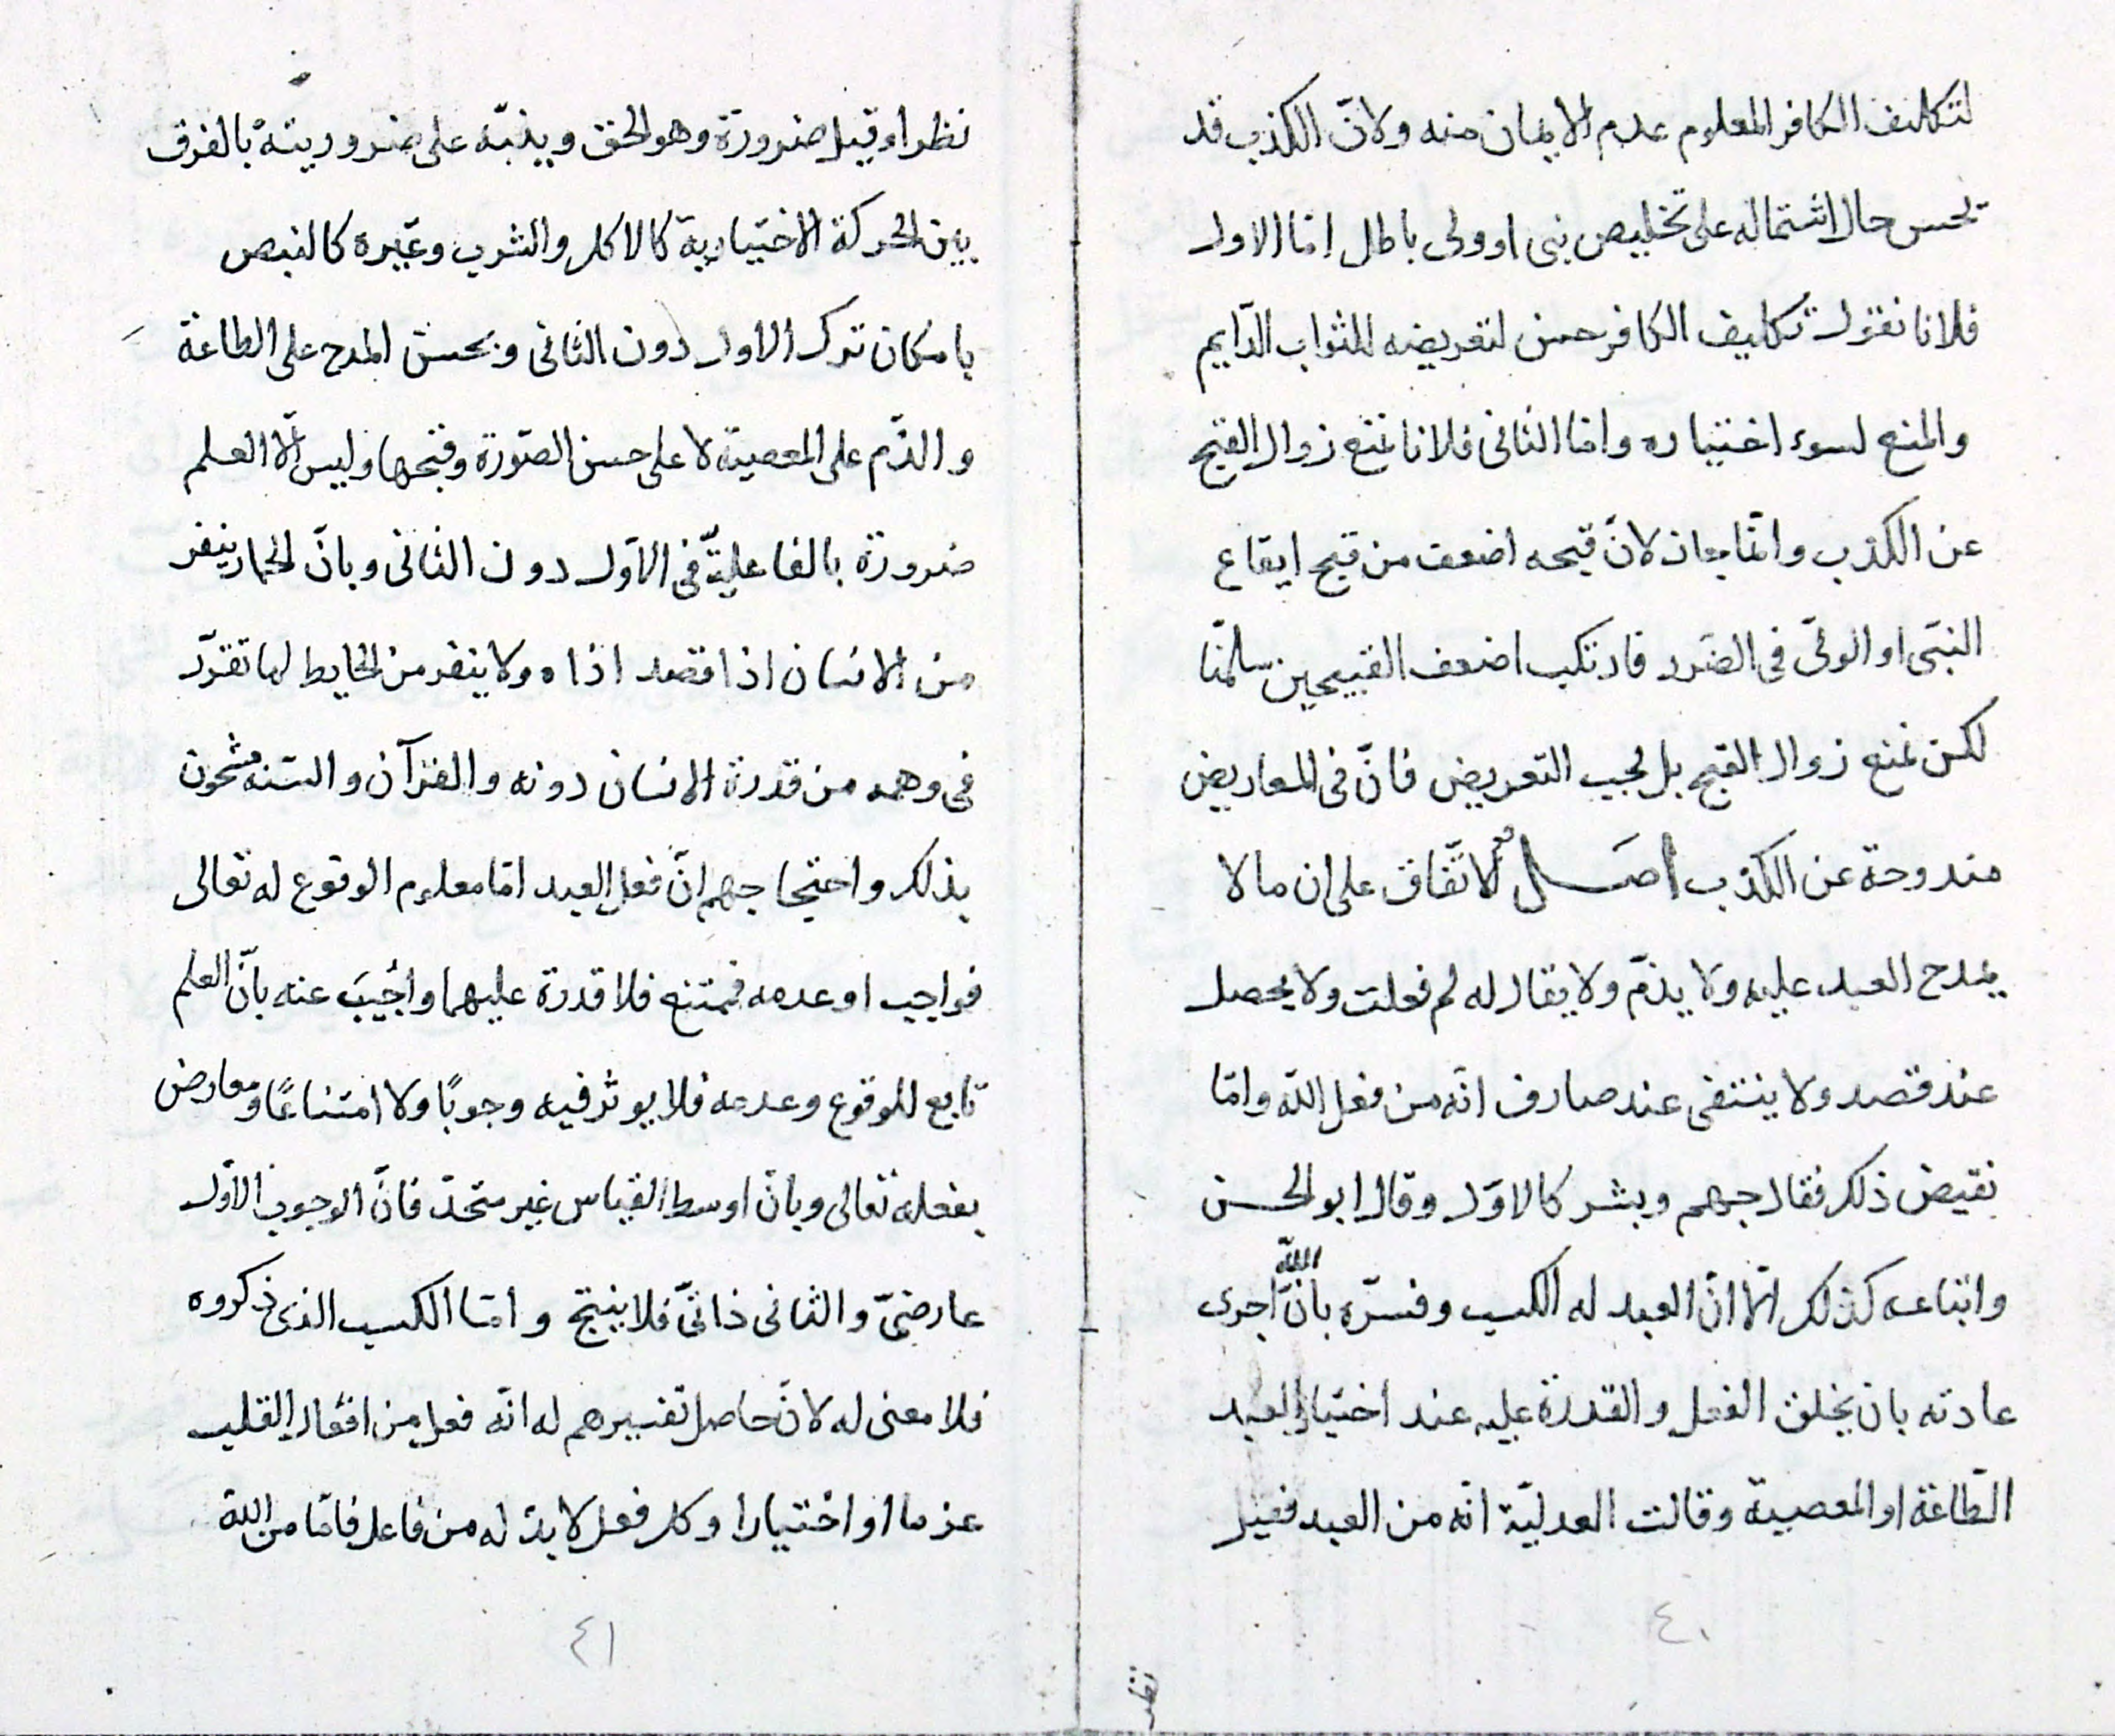 لتكليف الكافر المعلوم عدم الايمان منه ولانّ الكذب قد
يحسن حال اشتماله على تخليص نبى او ولى باطل امّا الاول
فلانا نقول تكليف الكافر حسن لتعريضه للثواب الدّايم
والمنع لسوء اختياره وامّا الثانى فلانا نمنع زوال القبح
عن الكذب وانّما جاز لانّ قبحه اضعف من قبح ايقاع
النبّى او الولىّ فى الضّرر فارتكب اضعف القبيحين سلّمنا
لكن نمنع زوال القبح بل يجب التعريض فانّ فى المعاريض
مندوحة عن الكذب اصل الاتّفاق على ان ما لا
يمدح العبد عليه ولا يذمّ ولا يقال له لم فعلت ولا يحصل
عند قصد ولا ينتفى عند صارف انّه من فعل اللّه وامّا
نقيض ذلك فقال جهم وبشر كالاوّل وقال ابو الحسن
واتباعه كذلك الّا انّ العبد له الكسب وفسّره بانّ اللّه اجرى
عادته بان يخلق الفعل والقدرة عليه عند اختيار العبد
الطّاعة او المعصية وقالت العدليّة انّه من العبد فقيل
٤٠
نظر
نظرا وقيل ضرورة وهو الحق وينبّه على ضروريته بالفرق
بين الحركة الاختيارية كالاكل والشرب وغيره كالنبض
بامكان ترك الاول دون الثانى وبحسن المدح على الطاعة
والذّم على المعصية لا على حسن الصّورة وقبحها وليس الّا العلم
ضرورة بالفاعليّة فى الاوّل دون الثانى وبانّ الحمار ينفر
من الانسان اذا قصد اذاه ولا ينفر من الحايط لما تقرّر
فى وهمه من قدرة الانسان دونه والقرآن والسّنه مشحون
بذلك واحتجاجهم انّ فعل العبد امّا معلوم الوقوع له تعالى
فواجب او عدمه فممتنع فلا قدرة عليهما واُجيبَ عنه بانّ العلم
تابع للوقوع وعدمه فلا يوثر فيه وجوبًا ولا امتناعًا ومعارض
بفعله تعالى وبانّ اوسط القياس غير متحدّ فانّ الوجوب الاوّل
عارضىّ والثانى ذاتىّ فلا ينتج وامّا الكسب الذى ذكروه
فلا معنى له لانّ حاصل تفسيرهم له انّه فعل من افعال القلب
عزما او اختيارا وكل فعل لا بدّ له من فاعل فامّا من اللّه
٤١